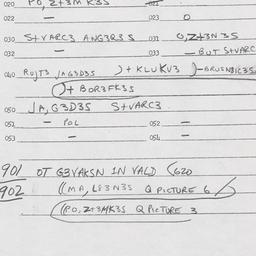 020 PO,Z+3M K3S
022 — 023 O
030 S+VARC3 ANG3R3S 031 O,Z+3N3S
032 — 033 — BUT S+VARC
040 )+ KLUKV3
)+ BOR3FK3S
050 JA,G3D3S S+VARC3
051 — POL 052 —
053 — 054 —
901 OT G3VAKSN IN VALD (620
902 ((MA,L83N3S Q PICTURE 6
((PO,Z+3MK3S Q PICTURE 3